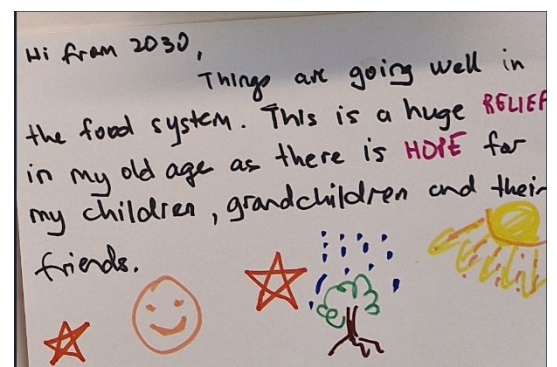 Hi from 2030,
Things are going well in
the food system. This is a huge RELIEF
in my old age as there is HOPE for
my children, grandchildren and their
friends.